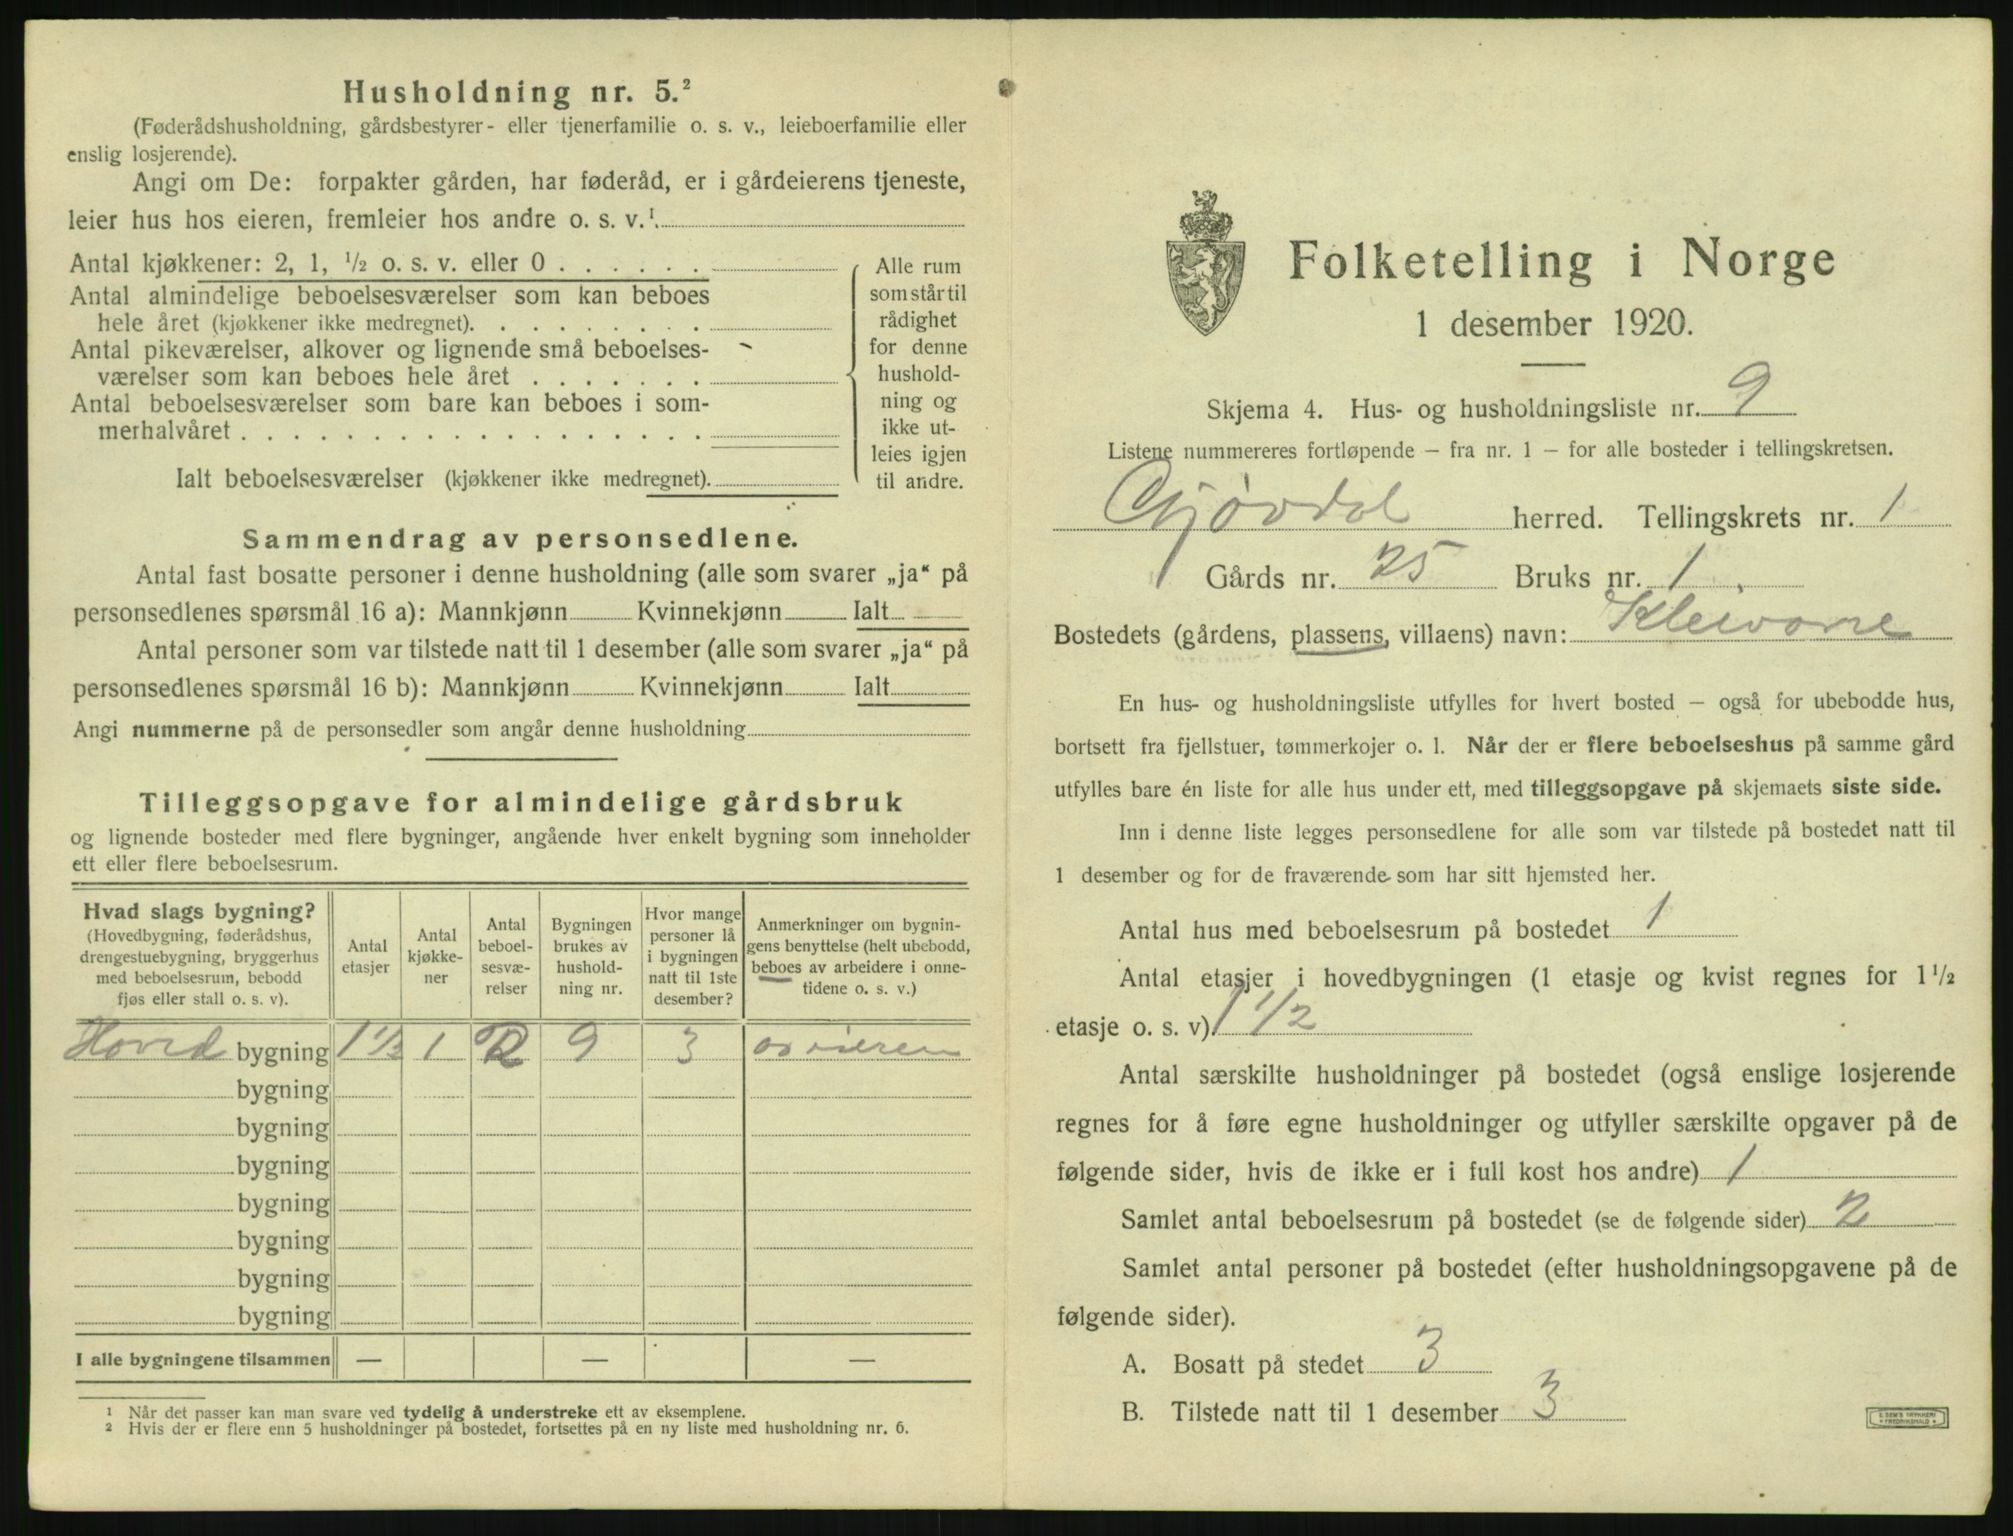 Husholdning nr. 5.²
(Føderådshusholdning, gårdsbestyrer- eller tjenerfamilie o. s. v., leieboerfamilie eller
enslig losjerende).
Angi om De: forpakter gården, har føderåd, er i gårdeierens tjeneste,
leier hus hos eieren, fremleier hos andre o. s. v.¹
Antal kjøkkener: 2, 1, ½ o. s. v. eller 0
Antal almindelige beboelsesværelser som kan beboes
hele året (kjøkkener ikke medregnet).
Antal pikeværelser, alkover og lignende små beboelses-
værelser som kan beboes hele året
Antal beboelsesværelser som bare kan beboes i som-
merhalvåret
Ialt beboelsesværelser (kjøkkener ikke medregnet).
Alle rum
som står til
rådighet
for denne
hushold-
ning og
ikke ut-
leies igjen
til andre.
Sammendrag av personsedlene.
Antal fast bosatte personer i denne husholdning (alle som svarer „ja“ på
personsedlenes spørsmål 16 a): Mannkjønn Kvinnekjønn Ialt
Antal personer som var tilstede natt til 1 desember (alle som svarer „ja“ på
personsedlenes spørsmål 16 b): Mannkjønn Kvinnekjønn Ialt
Angi nummerne på de personsedler som angår denne husholdning
Tilleggsopgave for almindelige gårdsbruk
og lignende bosteder med flere bygninger, angående hver enkelt bygning som inneholder
ett eller flere beboelsesrum.
Hvad slags bygning?
(Hovedbygning, føderådshus,
drengestuebygning, bryggerhus
med beboelsesrum, bebodd
fjøs eller stall o. s. v).
Antal
etasjer
Antal
kjøkke-
ner
Antal
beboel-
sesvæ-
relser
Bygningen
brukes av
hushold-
ning nr.
Hvor mange
personer lå
i bygningen
natt til 1ste
desember?
Anmerkninger om bygnin-
gens benyttelse (helt ubebodd,
beboes av arbeidere i onne-
tidene o. s. v.)
Hoved bygning 1 ½ 1 2 9 3
bygning
bygning
bygning
bygning
bygning
bygning
bygning
I alle bygningene tilsammen — — —
¹ Når det passer kan man svare ved tydelig å understreke ett av eksemplene.
² Hvis der er flere enn 5 husholdninger på bostedet, fortsettes på en ny liste med husholdning nr. 6.
Folketelling i Norge
1 desember 1920.
Skjema 4. Hus- og husholdningsliste nr. 9
Listene nummereres fortløpende – fra nr. 1 – for alle bosteder i tellingskretsen.
Gjøvdal herred. Tellingskrets nr. 1
Gårds nr. 25 Bruks nr. 1
Bostedets (gårdens, plassens, villaens) navn: Kleivane
En hus- og husholdningsliste utfylles for hvert bosted – også for ubebodde hus,
bortsett fra fjellstuer, tømmerkojer o. l. Når der er flere beboelseshus på samme gård
utfylles bare én liste for alle hus under ett, med tilleggsopgave på skjemaets siste side.
Inn i denne liste legges personsedlene for alle som var tilstede på bostedet natt til
1 desember og for de fraværende som har sitt hjemsted her.
Antal hus med beboelsesrum på bostedet 1
Antal etasjer i hovedbygningen (1 etasje og kvist regnes for 1 ½
etasje o. s. v). 1 ½
Antal særskilte husholdninger på bostedet (også enslige losjerende
regnes for å føre egne husholdninger og utfyller særskilte opgaver på de
følgende sider, hvis de ikke er i full kost hos andre) 1
Samlet antal beboelsesrum på bostedet (se de følgende sider) 2
Samlet antal personer på bostedet (efter husholdningsopgavene på de
følgende sider).
A. Bosatt på stedet 3
B. Tilstede natt til 1 desember 3